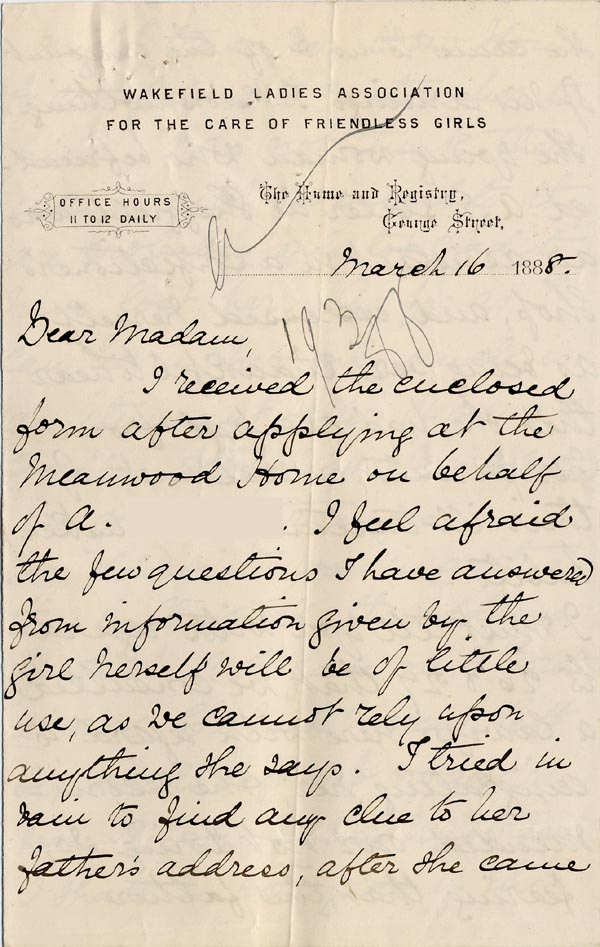 WAKEFIELD LADIES ASSOCIATION
FOR THE CARE OF FRIENDLESS GIRLS
OFFICE HOURS
11 TO 12 DAILY
The Home and Registry,
George Street,
March 16 1888.
Dear Madam,
I received the enclosed
form after applying at the
Meanwood Home on behalf
of A. . I feel afraid
the few questions I have answered
from information given by the
girl herself will be of little
use, as we cannot rely upon
anything she says. I tried in
vain to find any clue to her
father's address, after she came